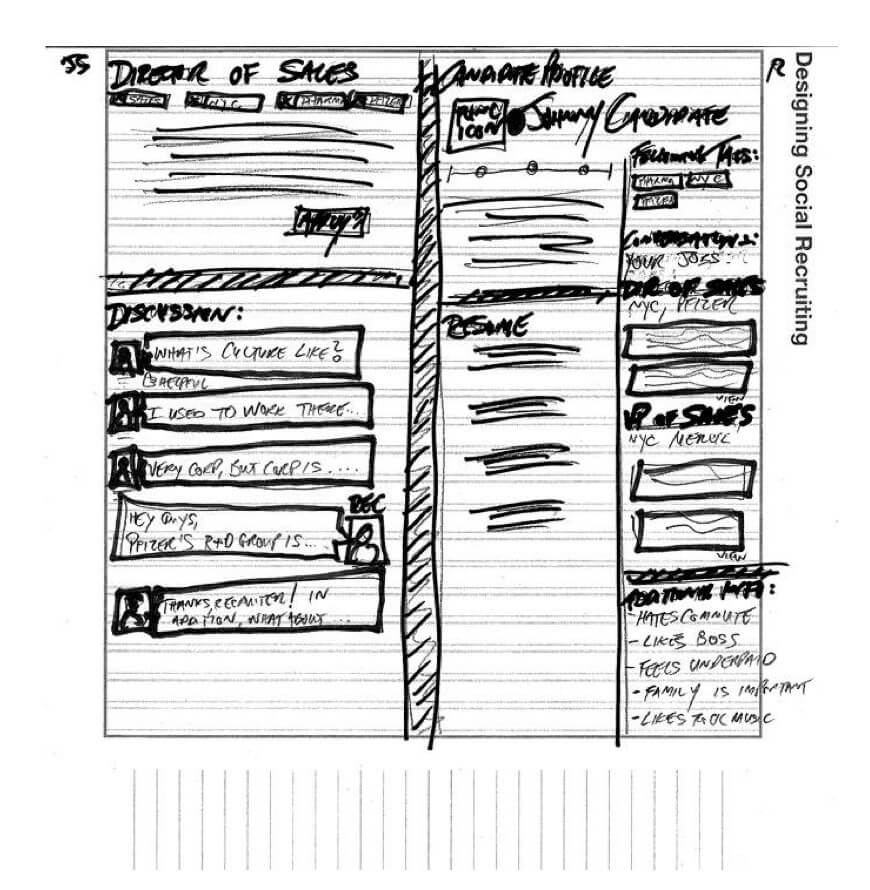 JS
DIRECTOR OF SALES
SALES NYC PHARMA PFIZER
APPLY?
DISCUSSION:
WHAT'S CULTURE LIKE?
HELPFUL
I USED TO WORK THERE...
VERY CORP, BUT CORP IS....
REC
HEY GUYS,
PFIZER'S R+D GROUP IS...
THANKS, RECRUITER! IN
ADDITION, WHAT ABOUT...
CANDIDATE PROFILE
ICON
JOHNNY CANDIDATE
RESUME
R
FOLLOWING TAGS:
PHARMA NYC
PFIZER
CONVERSATIONS:
YOUR JOBS
DIR OF SALES
NYC, PFIZER
VIEW
VP OF SALES
NYC MERCK
VIEW
ADDITIONAL INFO:
- HATES COMMUTE
- LIKES BOSS
- FEELS UNDERPAID
- FAMILY IS IMPORTANT
- LIKES MUSIC
Designing Social Recruiting